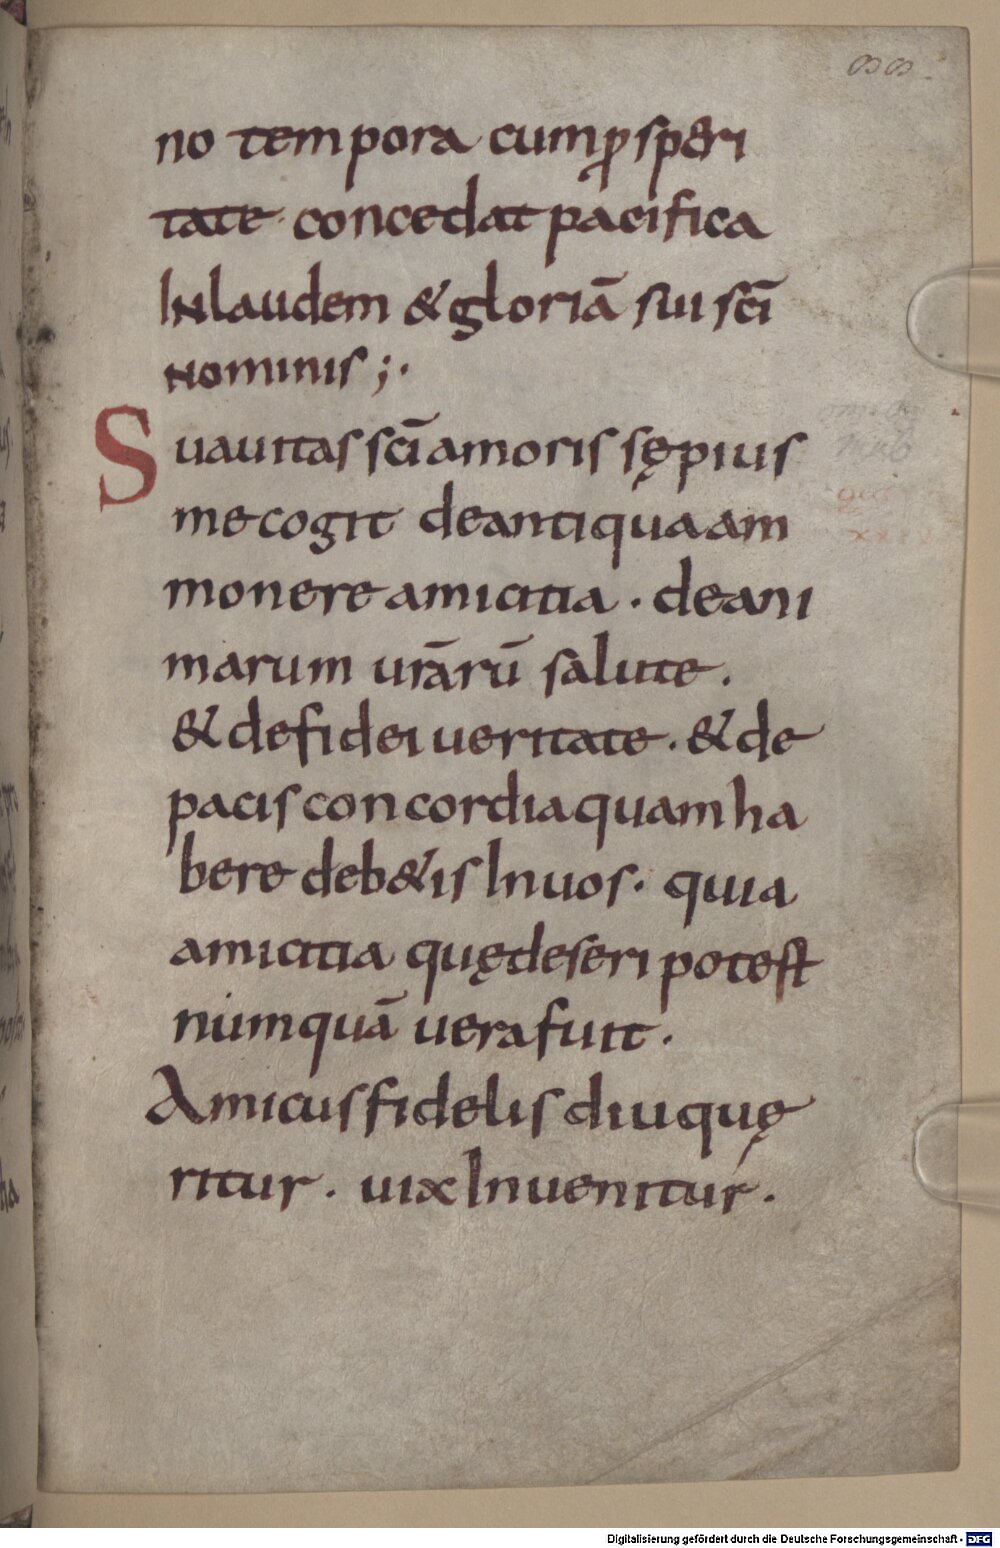 88
no tempora cum ꝓsperi
tate concedat pacifica
In laudem & gloriā sui scī
nominis;·
Suauitas scī amoris sępius
me cogit de antiqua am
monere amicitia · de ani
marum urārū salute ·
& de fidei ueritate · & de
pacis concordia quam ha
bere deb&is In uos · quia
amicitia quę deseri potest
numquā uera fuit ·
Amicus fidelis diu quę
ritur · uix Inuenitur ·
Digitalisierung gefördert durch die Deutsche Forschungsgemeinschaft - DFG